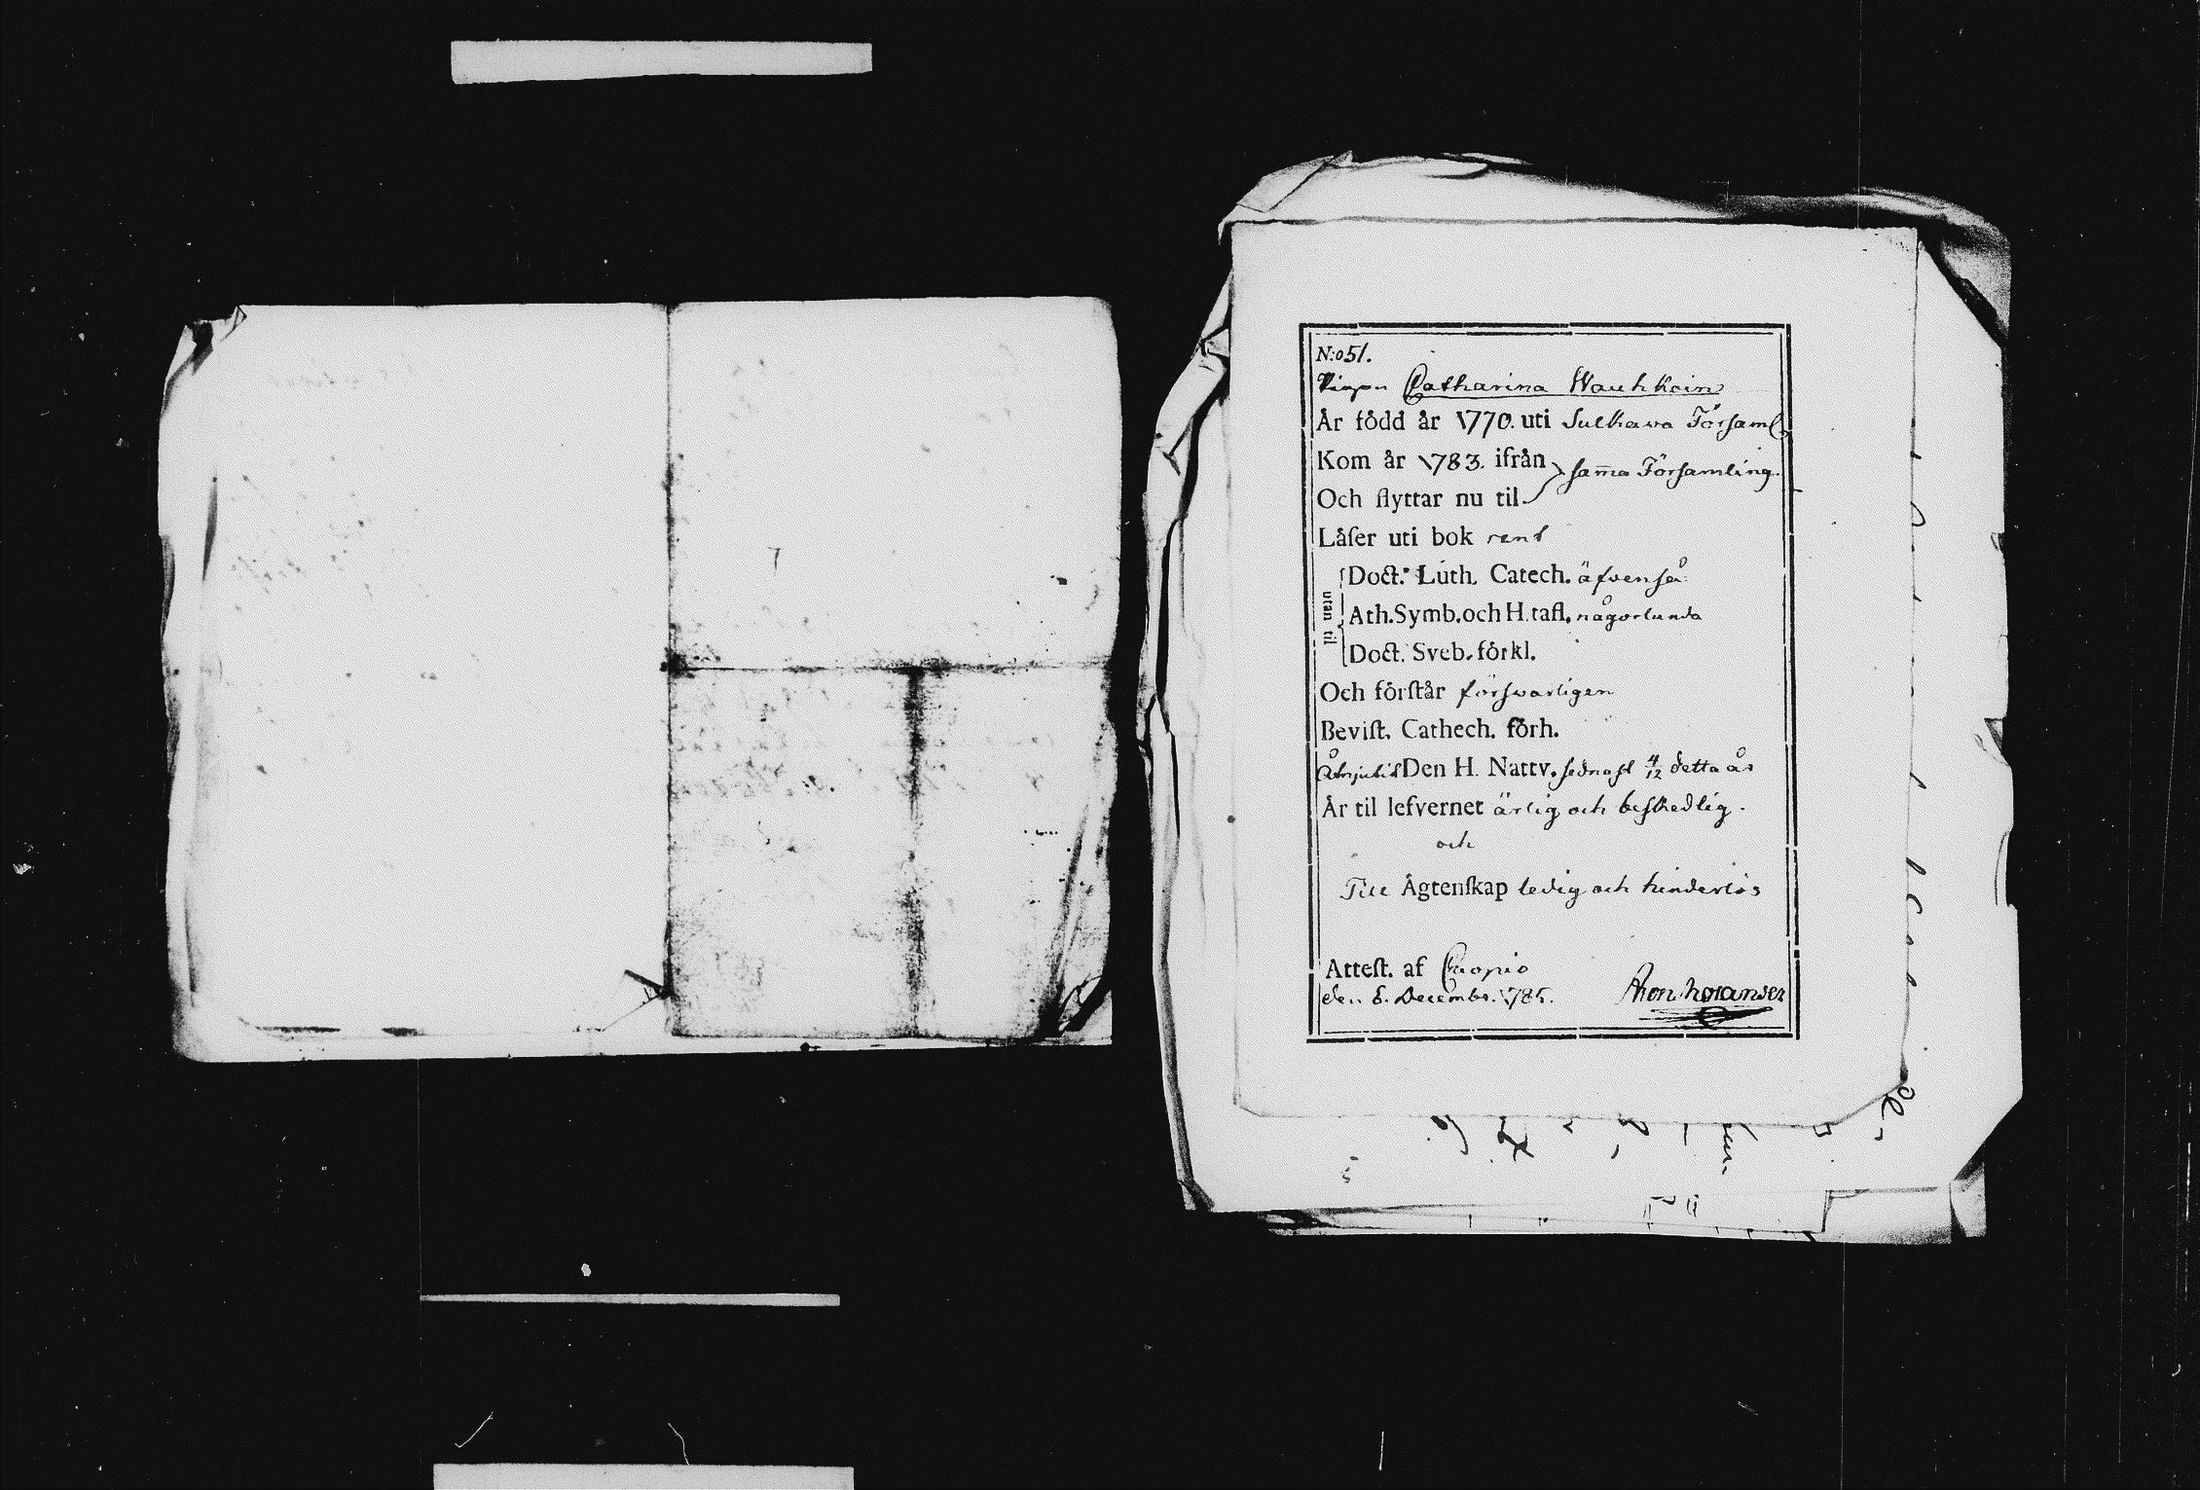 N:o 51.
Pigan Catharina Wauhkoin
År född år 1770. uti Sulkava Församl
Kom år 1783. ifrån
samma Församling.
Och flyttar nu til
Låser uti bok rent
utan til
Doct. Luth. Catech. äfvenså
Ath. Symb. och H. tafl. någorlunda
Doct. Sveb. förkl.
Och förstår försvarligen
Bevist. Cathech. förh.
Åtnjutit Den H. Nattv. sednast 4/12 detta år
År til lefvernet ärlig och beskedlig.
och
Till Ägtenskap ledig och hinderlös
Attest. af Cuopio
den 8. Decembr. 1785.